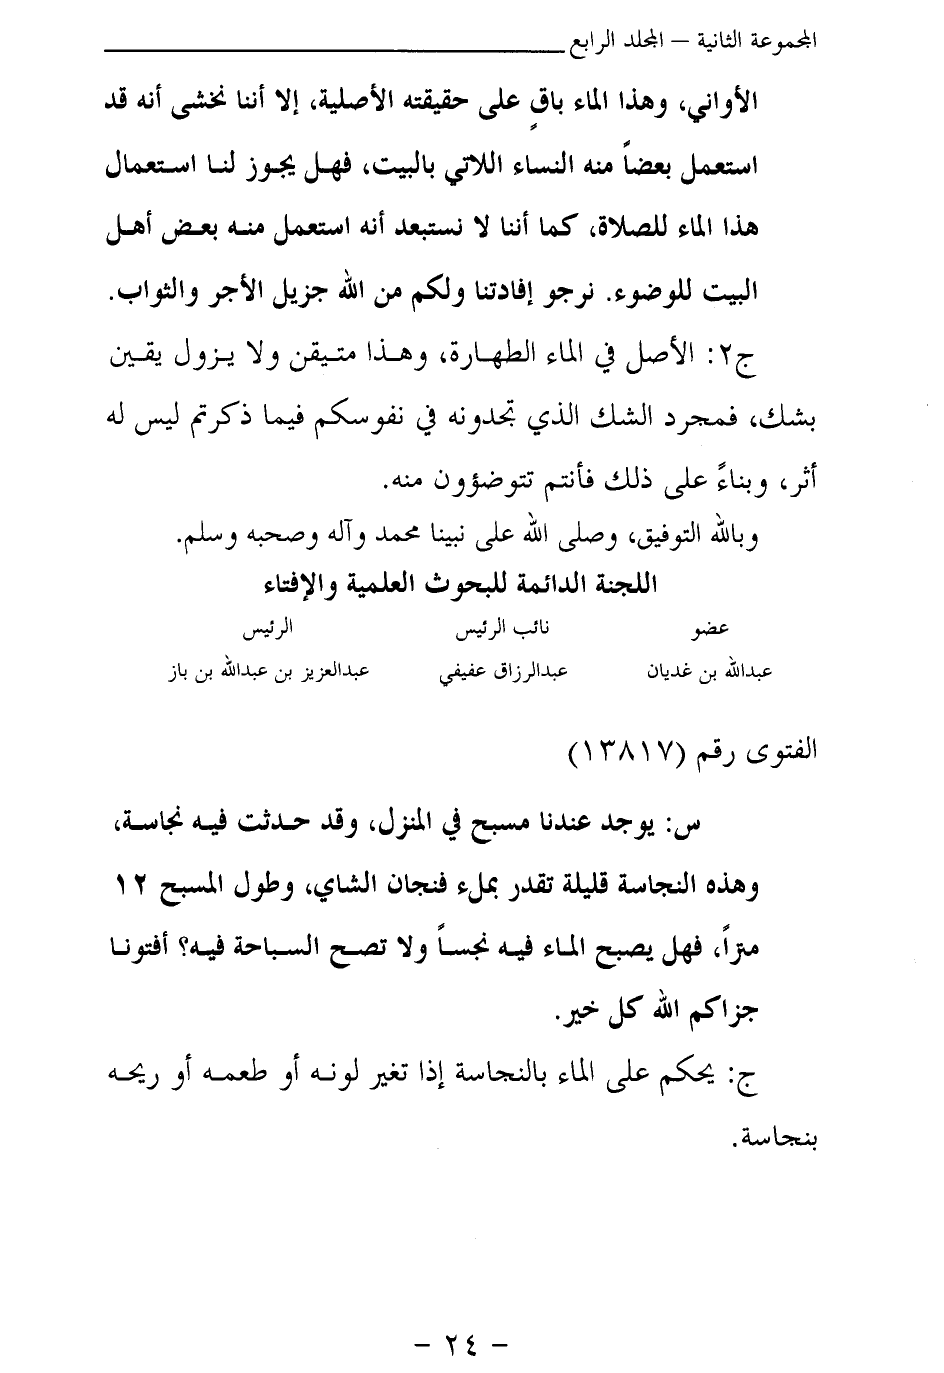 المجموعة الثانية – المجلد الرابع
الأواني، وهذا الماء باقٍ على حقيقته الأصلية، إلا أننا نخشى أنه قد
استعمل بعضاً منه النساء اللاتي بالبيت، فهل يجوز لنا استعمال
هذا الماء للصلاة، كما أننا لا نستبعد أنه استعمل منه بعض أهل
البيت للوضوء. نرجو إفادتنا ولكم من الله جزيل الأجر والثواب.
ج٢: الأصل في الماء الطهارة، وهذا متيقن ولا يزول يقين
بشك، فمجرد الشك الذي تجدونه في نفوسكم فيما ذكرتم ليس له
أثر، وبناءً على ذلك فأنتم تتوضؤون منه.
وبالله التوفيق، وصلى الله على نبينا محمد وآله وصحبه وسلم.
اللجنة الدائمة للبحوث العلمية والإفتاء
عضو نائب الرئيس الرئيس
عبدالله بن غديان عبدالرزاق عفيفي عبدالعزيز بن عبدالله بن باز
الفتوى رقم (١٣٨١٧)
س: يوجد عندنا مسبح في المنزل، وقد حدثت فيه نجاسة،
وهذه النجاسة قليلة تقدر بملء فنجان الشاي، وطول المسبح ١٢
متراً، فهل يصبح الماء فيه نجساً ولا تصح السباحة فيه؟ أفتونا
جزاكم الله كل خير.
ج: يحكم على الماء بالنجاسة إذا تغير لونه أو طعمه أو ريحه
بنجاسة.
– ٢٤ –